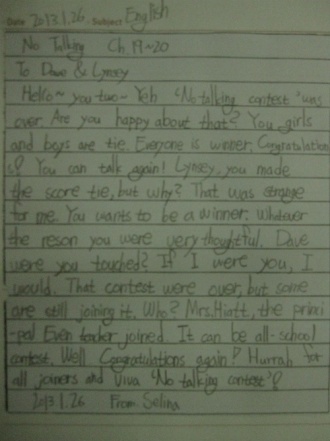 Date 2013.1.26. Subject English
No Talking Ch.19~20
To Dave & Lynsey
Hello~ you two~ Yeh 'No talking contest' was
over. Are you happy about that? You girls
and boys are tie. Everyone is winner. Congratulation
s! You can talk again! Lynsey, you made
the score tie, but why? That was strange
for me. You wants to be a winner. Whatever
the reson you were very thoughtful. Dave
were you touched? If I were you, I
would. That contest were over, but some
are still joining it. Who? Mrs.Hiatt, the princi
-pal Even teacher joined. It can be all-school
contest. Well Congratulations again! Hurrah for
all joiners and Viva 'No talking contest'!
2013.1.26 From. Selina